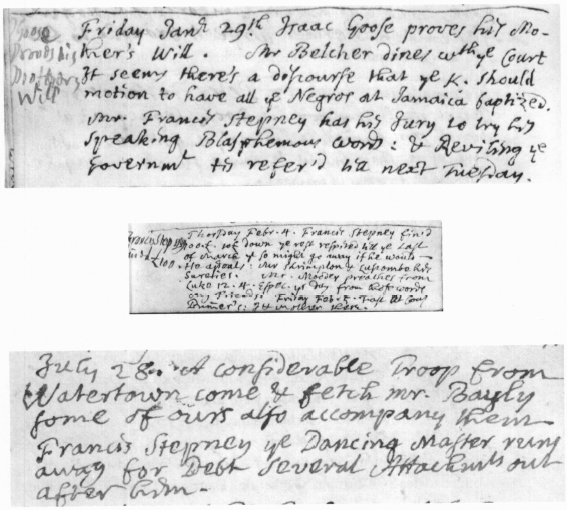 Goose
proves his
Mothers
Will
Friday Janr 29th Isaac Goose proves his Mo-
ther's Will. Mr Belcher dines wth ye Court
It seems there's a discourse that ye K. should
motion to have all ye Negros at Jamaica baptized.
Mr. Francis Stepney has his Jury to try his
speaking Blasphemous words: & Reviling ye
Governmt tis refer'd till next Tuesday.
Francis Step
£100.
Thorsday Febr. 4. Francis Stepney fin'd
100£. 10£ down ye rest respited till ye last
of March yt so might go away if he would
He apeals: Mr Shrimpton & Luscombe his
Sureties. Mr. Moodey preaches from
Luke 12. 4. Espec. yt day from those words
my Friends: Friday Feb. 5.
July 28. A considerable Troop from
Watertown come & fetch mr. Bayly
some of ours also accompany them
Francis Stepney ye Dancing Master runs
away for Debt Several Attachmts out
after him.